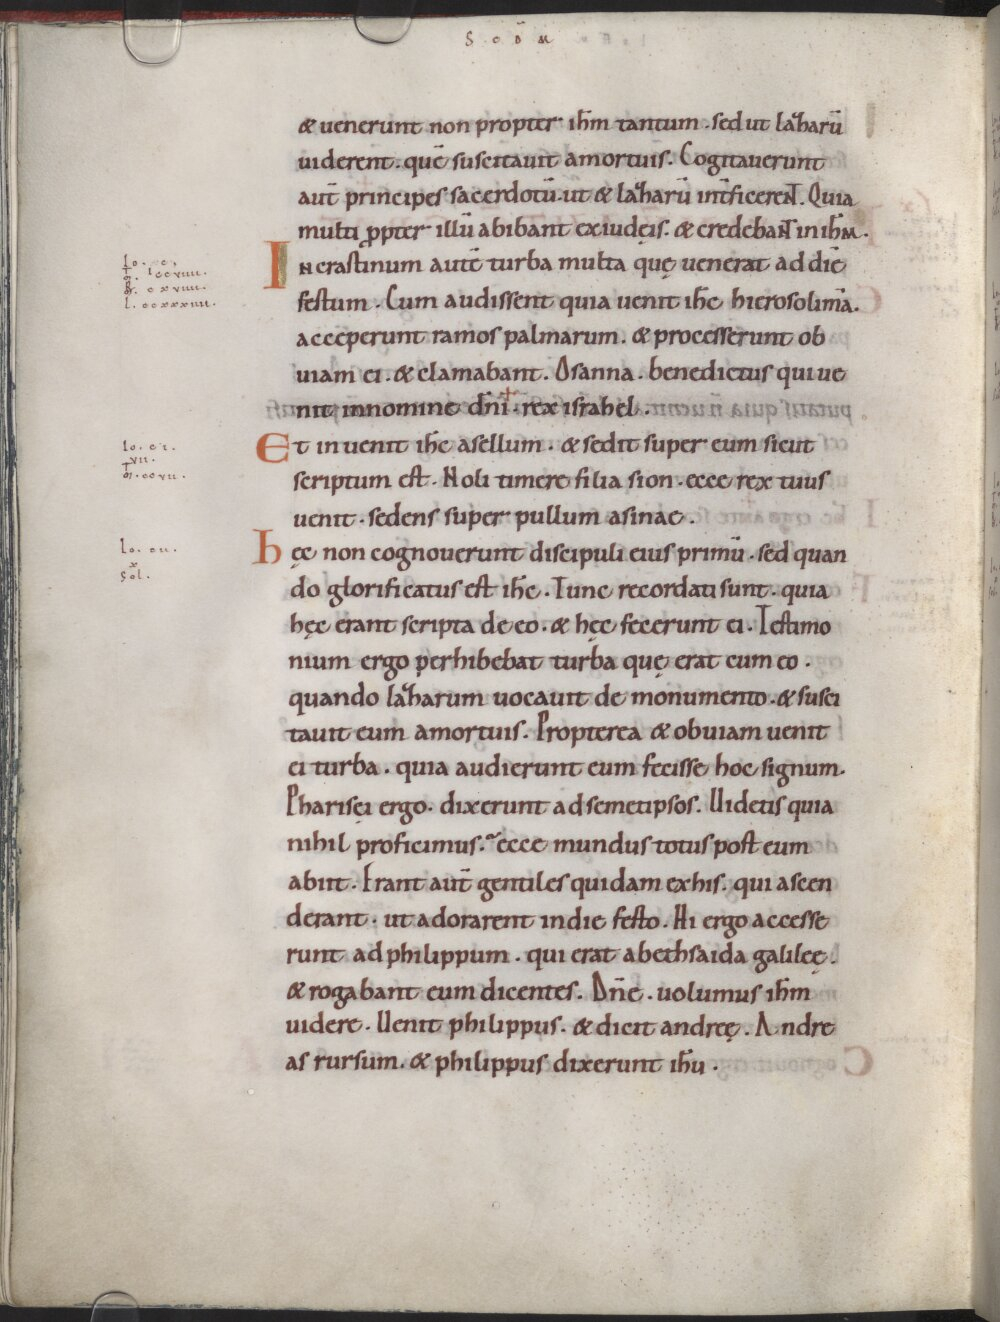 S C D̄ M
& uenerunt non propter ih̄m tantum . sed ut lazharū
uiderent . quē suscitauit amortuis . Cogitauerunt
aut̄ principes sacerdotū . ut & lazharū int̄ficerent . Quia
multi ꝓpter illū abibant exiudęis . & credebant in ih̄m .
In crastinum autē turba multa quę uenerat addiē
festum . Cum audissent quia uenit ih̄c hierosolimā .
acceperunt ramos palmarum . & processerunt ob
uiam ei . & clamabant . Osanna . benedictus qui ue
nit innomine dn̄i . rex israhel .
Et inuenit ih̄c asellum . & sedit super eum sicut
scriptum est . Noli timere filia sion . ecce rex tuus
uenit . sedens super pullum asinae .
hęc non cognouerunt discipuli eius primū . sed quan
do glorificatus est ih̄c . Tunc recordati sunt . quia
hęc erant scripta de eo . & hęc fecerunt ei . Testimo
nium ergo perhibebat turba quę erat cum eo .
quando lazharum uocauit de monumento . & susci
tauit eum amortuis . Propterea & obuiam uenit
ei turba . quia audierunt eum fecisse hoc signum .
Pharisęi ergo . dixerunt adsemetipsos . Uidetis quia
nihil proficimus . ecce mundus totus post eum
abiit . Erant aut̄ gentiles quidam exhis . qui ascen
derant . ut adorarent indie festo . Hi ergo accesse
runt ad philippum . qui erat abethsaida galileę .
& rogabant eum dicentes . Dn̄e . uolumus ih̄m
uidere . Uenit philippus . & dicit andreę . Andre
as rursum . & philippus dixerunt ih̄u .
Io . c .
ccviiii .
cxviii .
l . ccxxxiiii .
Io . ci .
vii .
ccvii .
Io . cii .
x
Sol .